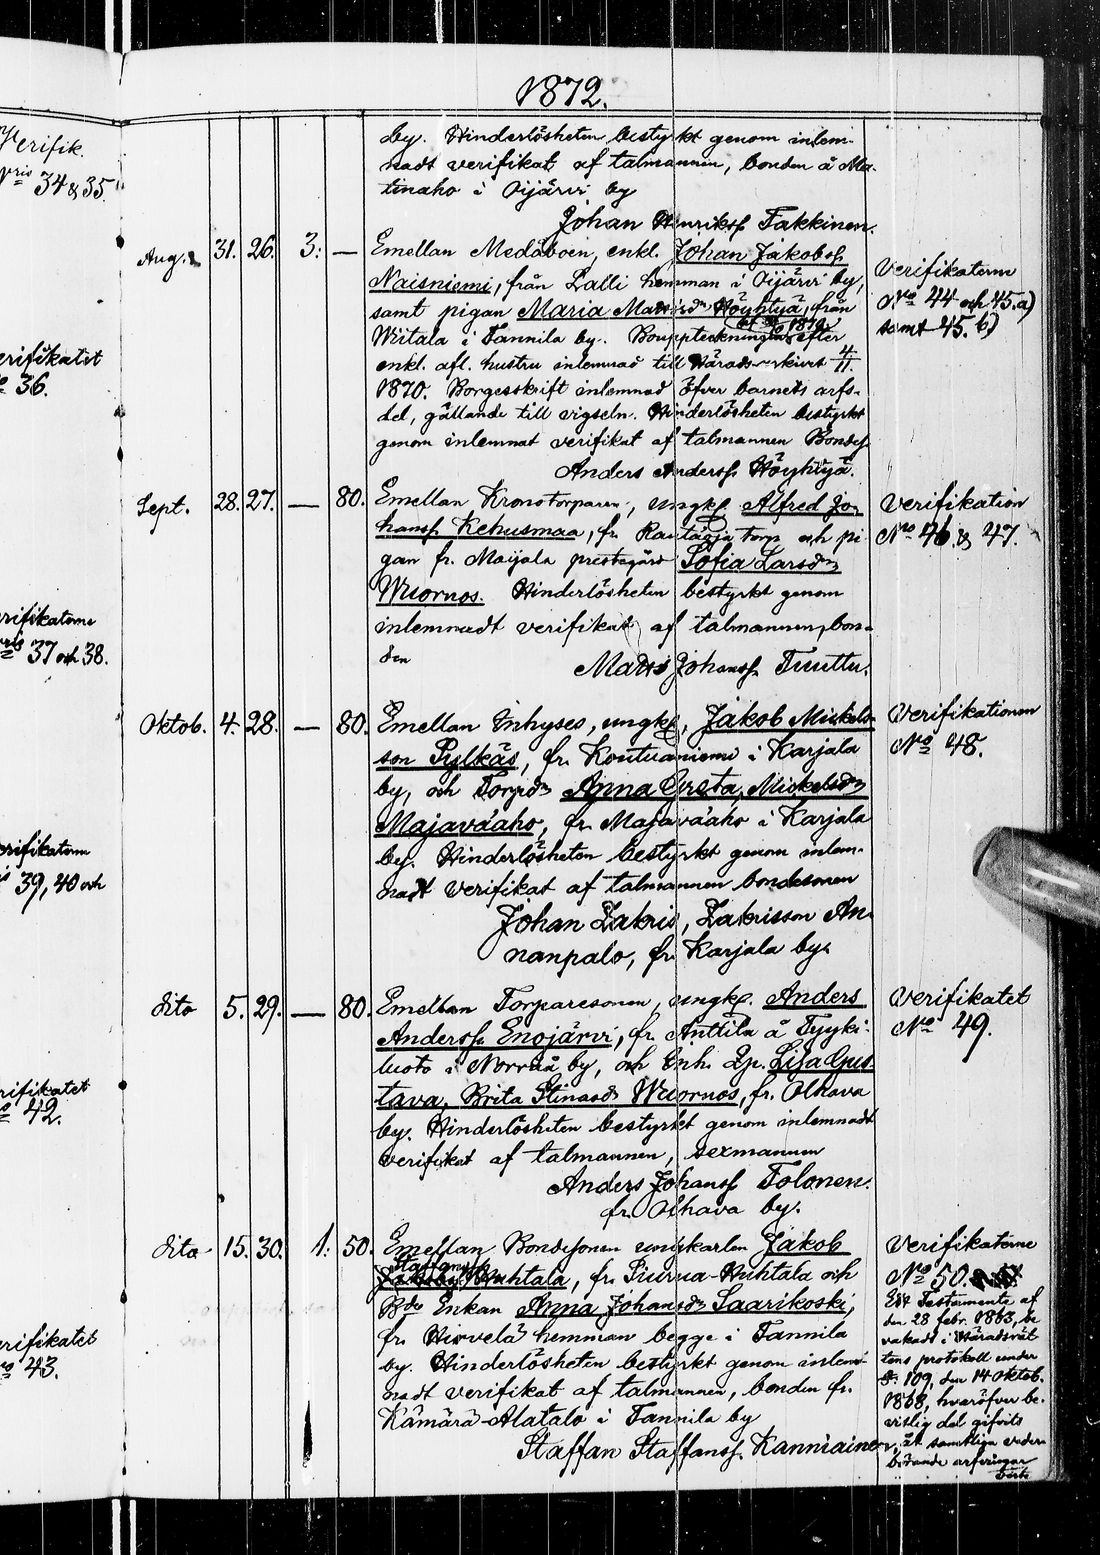 1872.
Verifik.
34 & 35.
by. Hinderlösheten bestyrkt genom inlem-
nadt verifikat af talmannen, bonden å Ma-
tinaho i Oijärvi by
Johan Henrikss. Takkinen.
Aug. 31. 26. 3: —
Emellan Medåboen, enkl. Johan Jakobss.
Naisniemi, från Lalli hemman i Oijärvi by,
samt pigan Maria Matsd:r Höyhtyä, från
Wiitala i Tannila by. Bouppteckningen efter
enkl. afl. hustru inlemnad till Härads-skrivt 4/11.
1870. Borgesskrift inlemnad öfver barnets arfs-
del, gällande till vigseln. Hinderlösheten bestyrkt
genom inlemnat verifikat af talmannen Bondes.
Anders Anderss. Höyhtyä.
Verifikaterne
N:ro 44 och 45.a)
samt 45. b)
Verifikatet
36.
Sept. 28. 27. — 80.
Emellan Kronotorparen, ungk. Alfred Jo-
hanss. Kehusmaa, fr. torp och pi-
gan fr. Maijala prestegård Sofia Larsd:r
Wuornos. Hinderlösheten bestyrkt genom
inlemnadt verifikat af talmannen, bon-
den
Matts Johanss. Tuuttu.
Verifikation
N:ro 46 & 47.
Verifikaterne
37 och 38.
Oktob. 4. 28. — 80.
Emellan Inhyses, ungk., Jakob Mickels-
son Pylkäs, fr. Kontuaniemi i Karjala
by, och Torpd:r Anna Greta, Mickelsd:r
Majavaaho, fr. Majavaaho i Karjala
by. Hinderlösheten bestyrkt genom inlem-
nadt verifikat af talmannen bondesonen
Johan Zakris, Zakrisson An-
nanpalo, fr. Karjala by.
Verifikationen
N:ro 48.
Verifikaterne
39, 40 och
dito 5. 29. — 80.
Emellan Torparesonen, ungk. Anders
Anderss. Enojärvi, fr. Anttila å Tyyki-
luoto i Norraå by, och Inh. Qp. Lisa Gus-
tava, Brita Stinasd:r Wuornos, fr. Olhava
by. Hinderlösheten bestyrkt genom inlemnadt
verifikat af talmannen, sexmannen
Anders Johanss. Tolonen.
fr. Olhava by.
Verifikatet
N:ro 49.
Verifikatet
42.
dito 15. 30. 1: 50.
Emellan Bondesonen ungkarlen Jakob
Staffanss.
Huhtala, fr. Siurua-Huhtala och
B:de Enkan Anna Johansd:r Saarikoski,
fr. Hirvelä hemman begge i Tannila
by. Hinderlösheten bestyrkt genom inlem-
nadt verifikat af talmannen, bonden fr.
Kämärä-Alatalo i Tannila by
Staffan Staffanss. Kanniainen
Verifikaterne
N:ro 50.
Ett Testamente af
den 28 febr. 1863, be-
vakadt i Häradsrät
tens protokoll under
§. 109, den 14 oktob.
1868, hvaröfver be-
vislig del gifvits
åt samtliga veder-
börande arfvingar
Verifikatet
43.